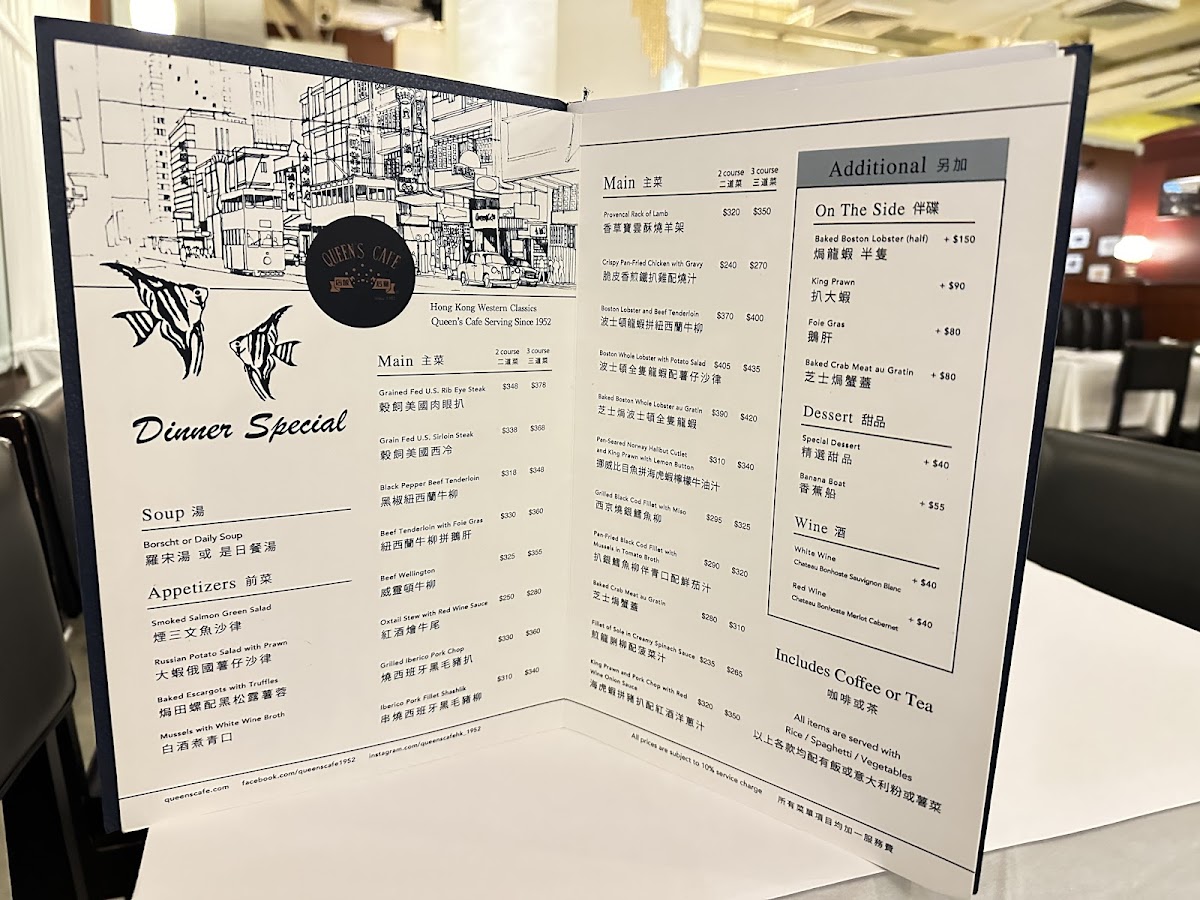 QUEEN'S CAFE
Hong Kong Western Classics
Queen's Cafe Serving Since 1952
Dinner Special
Soup 湯
Borscht or Daily Soup
羅宋湯 或 是日餐湯
Appetizers 前菜
Smoked Salmon Green Salad
煙三文魚沙律
Russian Potato Salad with Prawn
大蝦俄國薯仔沙律
Baked Escargots with Truffles
焗田螺配黑松露薯蓉
Mussels with White Wine Broth
白酒煮青口
Main 主菜
2 course 3 course
二道菜 三道菜
Grained Fed U.S. Rib Eye Steak $348 $378
穀飼美國肉眼扒
Grain Fed U.S. Sirloin Steak $338 $368
穀飼美國西冷
Black Pepper Beef Tenderloin $318 $348
黑椒紐西蘭牛柳
Beef Tenderloin with Foie Gras $330 $360
紐西蘭牛柳拼鵝肝
Beef Wellington $325 $355
威靈頓牛柳
Oxtail Stew with Red Wine Sauce $250 $280
紅酒燴牛尾
Grilled Iberico Pork Chop $330 $360
燒西班牙黑毛豬扒
Iberico Pork Fillet Shashlik $310 $340
串燒西班牙黑毛豬柳
queenscafe.com facebook.com/queenscafe1952 instagram.com/queenscafehk_1952
Main 主菜
2 course 3 course
二道菜 三道菜
Provencal Rack of Lamb $320 $350
香草寶雲酥燒羊架
Crispy Pan-Fried Chicken with Gravy $240 $270
脆皮香煎鐵扒雞配燒汁
Boston Lobster and Beef Tenderloin $370 $400
波士頓龍蝦拼紐西蘭牛柳
Boston Whole Lobster with Potato Salad $405 $435
波士頓全隻龍蝦配薯仔沙律
Baked Boston Whole Lobster au Gratin $390 $420
芝士焗波士頓全隻龍蝦
Pan-Seared Norway Halibut Cutlet
and King Prawn with Lemon Button $310 $340
挪威比目魚拼海虎蝦檸檬牛油汁
Grilled Black Cod Fillet with Miso $295 $325
西京燒銀鱈魚柳
Pan-Fried Black Cod Fillet with
Mussels in Tomato Broth $290 $320
扒銀鱈魚柳伴青口配鮮茄汁
Baked Crab Meat au Gratin $280 $310
芝士焗蟹蓋
Fillet of Sole in Creamy Spinach Sauce $235 $265
煎龍脷柳配菠菜汁
King Prawn and Pork Chop with Red
Wine Onion Sauce $320 $350
海虎蝦拼豬扒配紅酒洋蔥汁
All prices are subject to 10% service charge 所有菜單項目均加一服務費
Additional 另加
On The Side 伴碟
Baked Boston Lobster (half) + $150
焗龍蝦 半隻
King Prawn + $90
扒大蝦
Foie Gras + $80
鵝肝
Baked Crab Meat au Gratin + $80
芝士焗蟹蓋
Dessert 甜品
Special Dessert + $40
精選甜品
Banana Boat + $55
香蕉船
Wine 酒
White Wine
Chateau Bonhoste Sauvignon Blanc + $40
Red Wine
Chateau Bonhoste Merlot Cabernet + $40
Includes Coffee or Tea
咖啡或茶
All items are served with
Rice / Spaghetti / Vegetables
以上各款均配有飯或意大利粉或薯菜